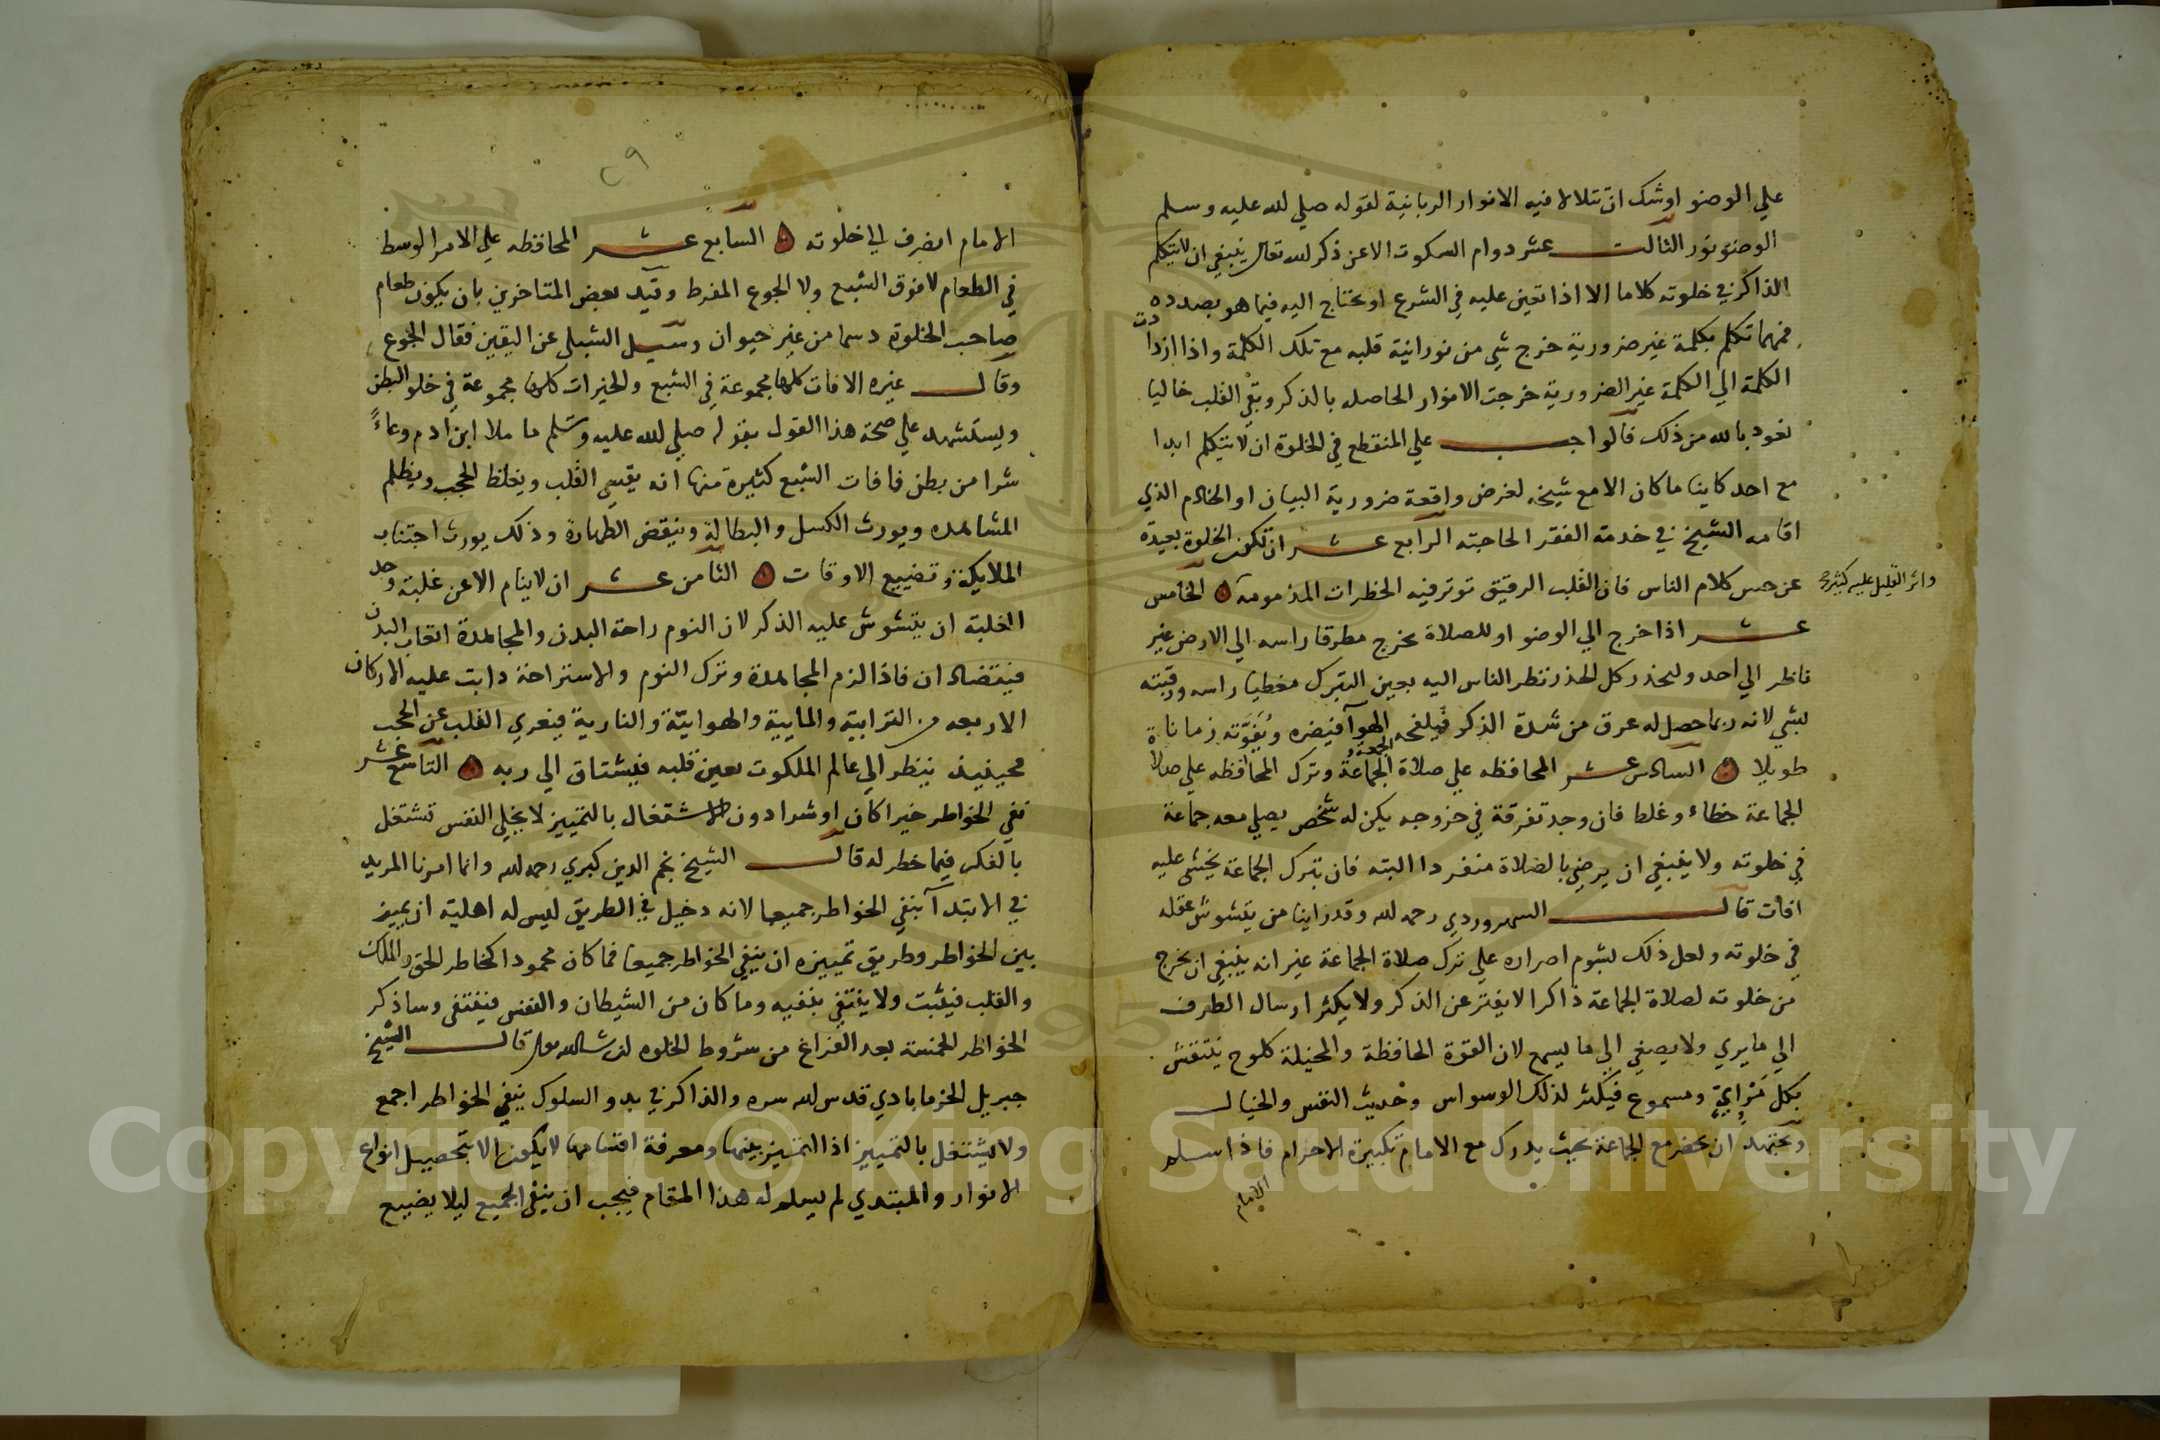 علي الوضو اوشك ان تتلالا فيه الانوار الربانية لقوله صلي لله عليه وسلم
الوضو نور الثالث عشر دوام السكوت الا عن ذكر لله تعالى ينبغي ان لا يتكلم
الذاكر في خلوته كلاما الا اذا تعين عليه في الشرع او يحتاج اليه فيما هو بصدده
فمهما تكلم بكلمة غير ضرورية خرج شي من نورانية قلبه مع تلك الكلمة واذا ازدادت
الكلمة الي الكلمة غير الضرورية خرجت الانوار الحاصله بالذكر وبقي القلب خاليا
نعود بالله من ذلك قالوا جب علي المنقطع في الخلوة ان لا يتكلم ابدا
مع احد كاينا ما كان الا مع شيخه لغرض واقعة ضرورية البيان او الخادم الذي
اقامه الشيخ في خدمة الفقر الحاجته الرابع عشر ان تكون الخلوة بعيدة
عن حس كلام الناس فان القلب الرقيق توثر فيه الخطرات المذمومه الخامس
واثر القليل عليه كثير صح
عشر اذا خرج الي الوضو او للصلاة يخرج مطرقا راسه الي الارض غير
ناظر الي احد وليحذر كل الحذر نظر الناس اليه بعين التبرك مغطيا راسه ورقبته
بشي لانه ربما حصل له عرق من شدة الذكر فيلفحه الهوآ فيضره ويفوته زمانا
طويلا السادس عشر المحافظه علي صلاة الجماعة والجمعة وترك المحافظه علي صلاة
الجماعة خطاء وغلط فان وجد تفرقة في خروجه يكن له شخص يصلي معه جماعة
في خلوته ولا ينبغي ان يرضي بالصلاة منفردا البته فان بترك الجماعة يخشى عليه
افات قال السهروردي رحمه لله وقد راينا من يتشوش عقله
في خلوته ولعل ذلك لشوم اصراره علي ترك صلاة الجماعة غير انه ينبغي ان يخرج
من خلوته لصلاة الجماعة ذاكرا لا يفتر عن الذكر ولا يكثر ارسال الطرف
الي ما يري ولا يصغي الي ما يسمع لان القوة الحافظة والمخيلة كلوح ينتقش
بكل مرايي ومسموع فيكثر لذلك الوسواس وحديث النفس والخيال
ويجتهد ان يحضر مع الجماعة بحيث يدرك مع الامام تكبيرة الاحرام فاذا سلم
الامام
٢٩
الامام انصرف الي خلوته السابع عشر المحافظه علي الامر الوسط
في الطعام لا فوق الشبع ولا الجوع المفرط وقيد بعض المتاخرين بان يكون طعام
صاحب الخلوة دسما من غير حيوان وسيل الشبلي عن اليقين فقال الجوع
وقال غيره الافات كلها مجموعة في الشبع والخيرات كلها مجموعة في خلو البطن
ويستشهد علي صحة هذا القول بقوله صلي لله عليه وسلم ما ملا ابن ادم وعاءً
شرا من بطن فافات الشبع كثيرة منها انه يقسي القلب ويغلظ الحجب ويظلم
المشاهده ويورث الكسل والبطالة وينقض الطهارة وذلك يورث اجتناب
الملايكة وتضييع الاوقات الثامن عشر ان لا ينام الا عن غلبة وحد
الغلبة ان يتشوش عليه الذكر لان النوم راحة البدن والمجاهدة اتعاب البدن
فيتضادان فاذا لزم المجاهدة وترك النوم والاستراحة دابت عليه الاركان
الاربعه من الترابية والمايية والهوايية والنارية فيعري القلب عن الحجب
فحينيذ ينظر الي عالم الملكوت بعين قلبه فيشتاق الي ربه التاسع عشر
نفي الخواطر خيرا كان او شرا دون الاشتغال بالتمييز لا يخلي النفس تشتغل
بالفكر فيما خطر له قال الشيخ نجم الدين كبري رحمه لله وانما امرنا المريد
في الابتدآ بنفي الخواطر جميعها لانه دخيل في الطريق ليس له اهلية ان يميز
بين الخواطر وطريق تمييزه ان ينفي الخواطر جميعا فما كان محمودا كخاطر الحق والملك
والقلب فيثبت ولا ينتفي بنفيه وما كان من الشيطان والنفس فينتفي وساذكر
الخواطر الخمسة بعد الفراغ من شروط الخلوه ان شا الله تعالى قال الشيخ
جبريل الخرماباذي قدس لله سره والذاكر في بدو السلوك ينفي الخواطر اجمع
ولا يشتغل بالتمييز اذ التمييز بينها ومعرفة اقسامها لا يكون الا بتحصيل انواع
الانوار والمبتدي لم يسلم له هذا المقام فيجب ان ينفي الجميع ليلا يضيع
Copyright © King Saud University
1957